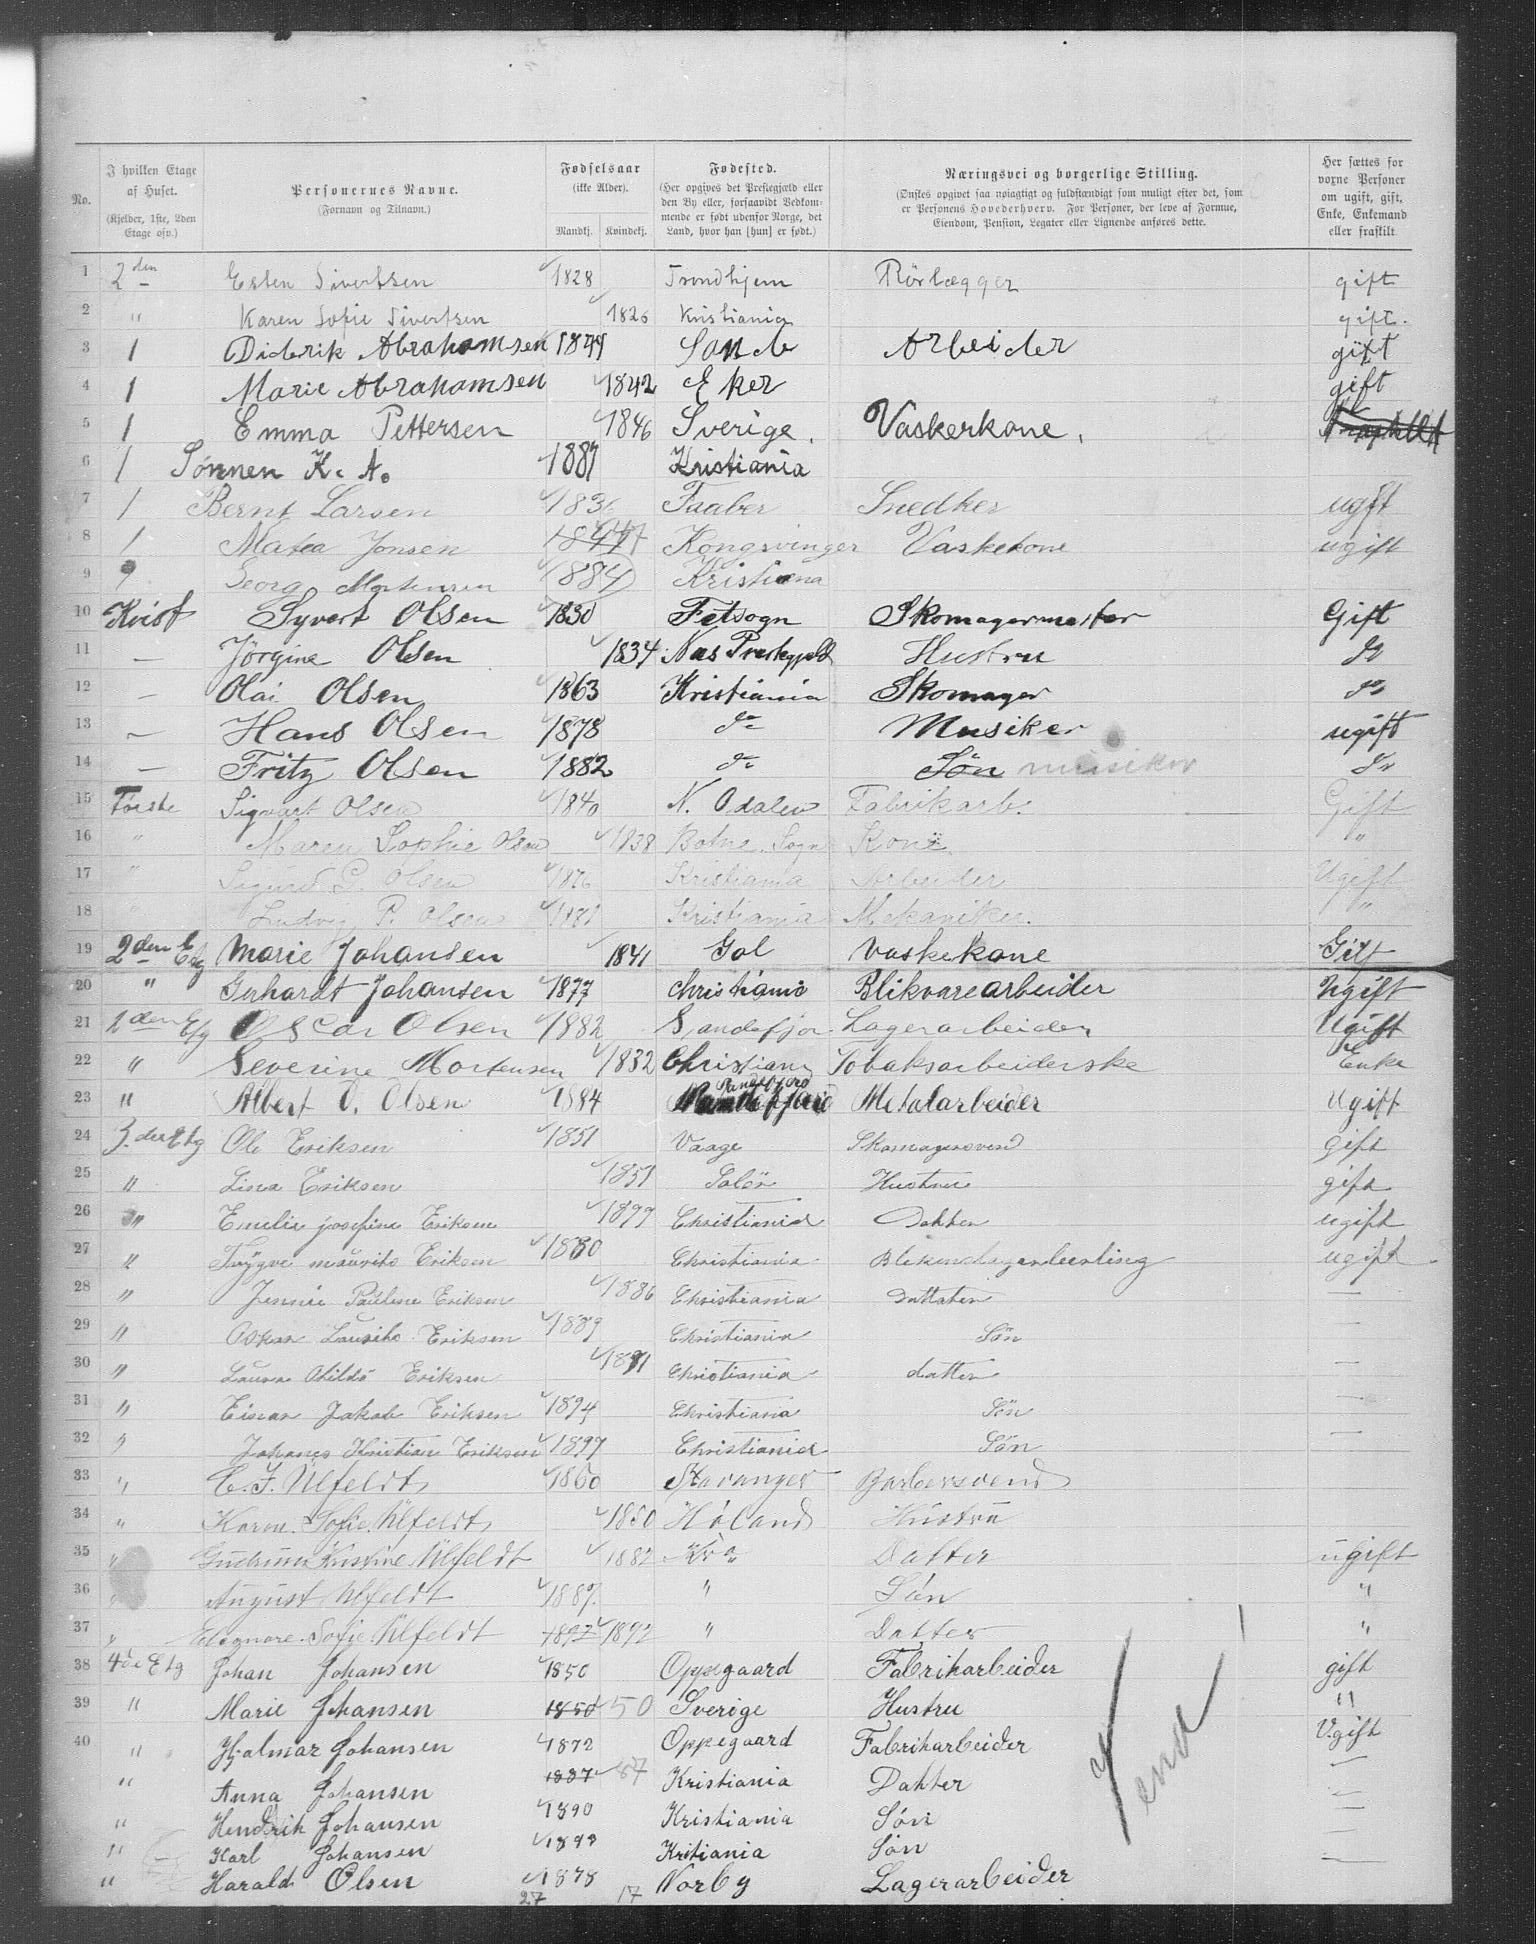 No.
I hvilken Etage af Huset. (Kjelder, 1ste, 2den Etage osv.)
Personernes Navne. (Fornavn og Tilnavn.)
Fødselsaar (ikke Alder). Mandkj. Kvindekj.
Fødested. (Her opgives det Prestegjæld eller den By eller, forsaavidt Vedkommende er født udenfor Norge, det Land, hvor han [hun] er født.)
Næringsvei og borgerlige Stilling. (Ønskes opgivet saa nøiagtigt og fuldstændigt som muligt efter det, som er Personens Hovederhverv. For Personer, der leve af Formue, Eiendom, Pension, Legater eller Lignende anføres dette.
Her sættes for voxne Personer om ugift, gift, Enke, Enkemand eller fraskilt
1 2den Esten Sivertsen 1828 Trondhjem Rörlægger gift
2 " Karen Sofie Sivertsen 1826 Kristiania gift.
3 1 Diderik Abrahamsen Sande Arbeider gift
4 1 Marie Abrahamsen 1842 Eker gift
5 1 Emma Pettersen 1846 Sverige. Vaskerkone.
6 1 Sønnen K. A. 1887 Kristiania
7 1 Bernt Larsen 1836 Faaber Snedker ugift
8 1 Matea Jonsen Kongsvinger Vaskekone ugift
9 Georg Mortensen 1884 Kristiania
10 Kvist Syvert Olsen 1830 Fetsogn Skomagermester Gift
11 — Jörgine Olsen 1834 Nas Prestegjeld Hustru do
12 — Olai Olsen 1863 Kristiania Skomager do
13 — Hans Olsen 1878 do Musiker ugift
14 — Fritz Olsen 1882 do Søn musiker do
15 Første Sigvart Olsen 1840 N. Odalen Fabrikarb. Gift
16 " Maren Sophie Olsen 1838 Botne Sogn Kone "
17 " Sigurd P. Olsen 1876 Kristiania Arbeider Ugift
18 " Ludvig P. Olsen Kristiania Mekaniker. "
19 2den Etg Marie Johansen 1841 Gol Vaskekone Gift
20 " Gerhardt Johansen 1877 Christiania Blikvarearbeider Ugift
21 Oscar Olsen 1882 Sandefjor Lagerarbeider Ugift
22 " Severine Mortensen 1832 Christiana Tobaksarbeiderske Enke
23 " Albert O. Olsen 1884 Sandefjord Metalarbeider Ugift
24 3.die Etg Ole Eriksen 1851 Vaage Skomagersvend gift
25 " Lina Eriksen 1851 Solör Hustru gift
26 " Emelie josefine Eriksen Christiania Datter ugift
27 " Trygve mauritz Eriksen 1880 Christiania ugift
28 " Jennie Pauline Eriksen 1886 Christiania Dattater —
29 " Oskar Lauritz Eriksen 1889 Christiania Sön —
30 " Laura Othilde Eriksen 1891 Christiania datter —
31 " Einar Jakob Eriksen 1894 Christiania Sön —
32 " Johanes Kristian Eriksen 1897 Christiania Sön —
33 " C. F. Ulfeldt 1860 Stavanger Barbersvend
34 " Karen Sofie Ulfeldt 1850 Høland Hustru
35 " Gudrun Kristine Ulfeldt 1882 Kra Datter ugift
36 " August Ulfeldt 1887. " Søn "
37 " Eleonore Sofie Ulfeldt 1892 1892 " Datter "
38 4de Etg Johan Johansen 1850 Oppegaard Fabrikarbeider gift
39 " Marie Johansen 1850 50 Sverige Hustru "
40 " Hjalmar Johansen 1872 Oppegaard Fabrikarbeider Ugift
" Anna Johansen 1887 87 Kristiania Dahter —
" Hendrik Johansen 1890 Kristiania Søn —
" Karl Johansen 1893 Kritiania Søn —
" Harald Olsen 1878 Norby Lagerarbeider —
27 17